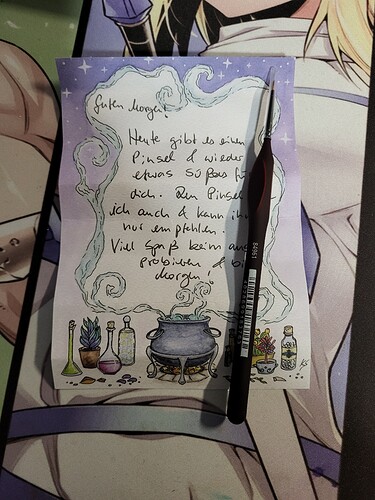 Guten Morgen!
Heute gibt es einen
Pinsel & wieder
etwas süßes fü
dich. Den Pinsel
ich auch & kann ihn
nur empfehlen.
Viel Spaß beim aus
probieren & bis
Morgen.
84061